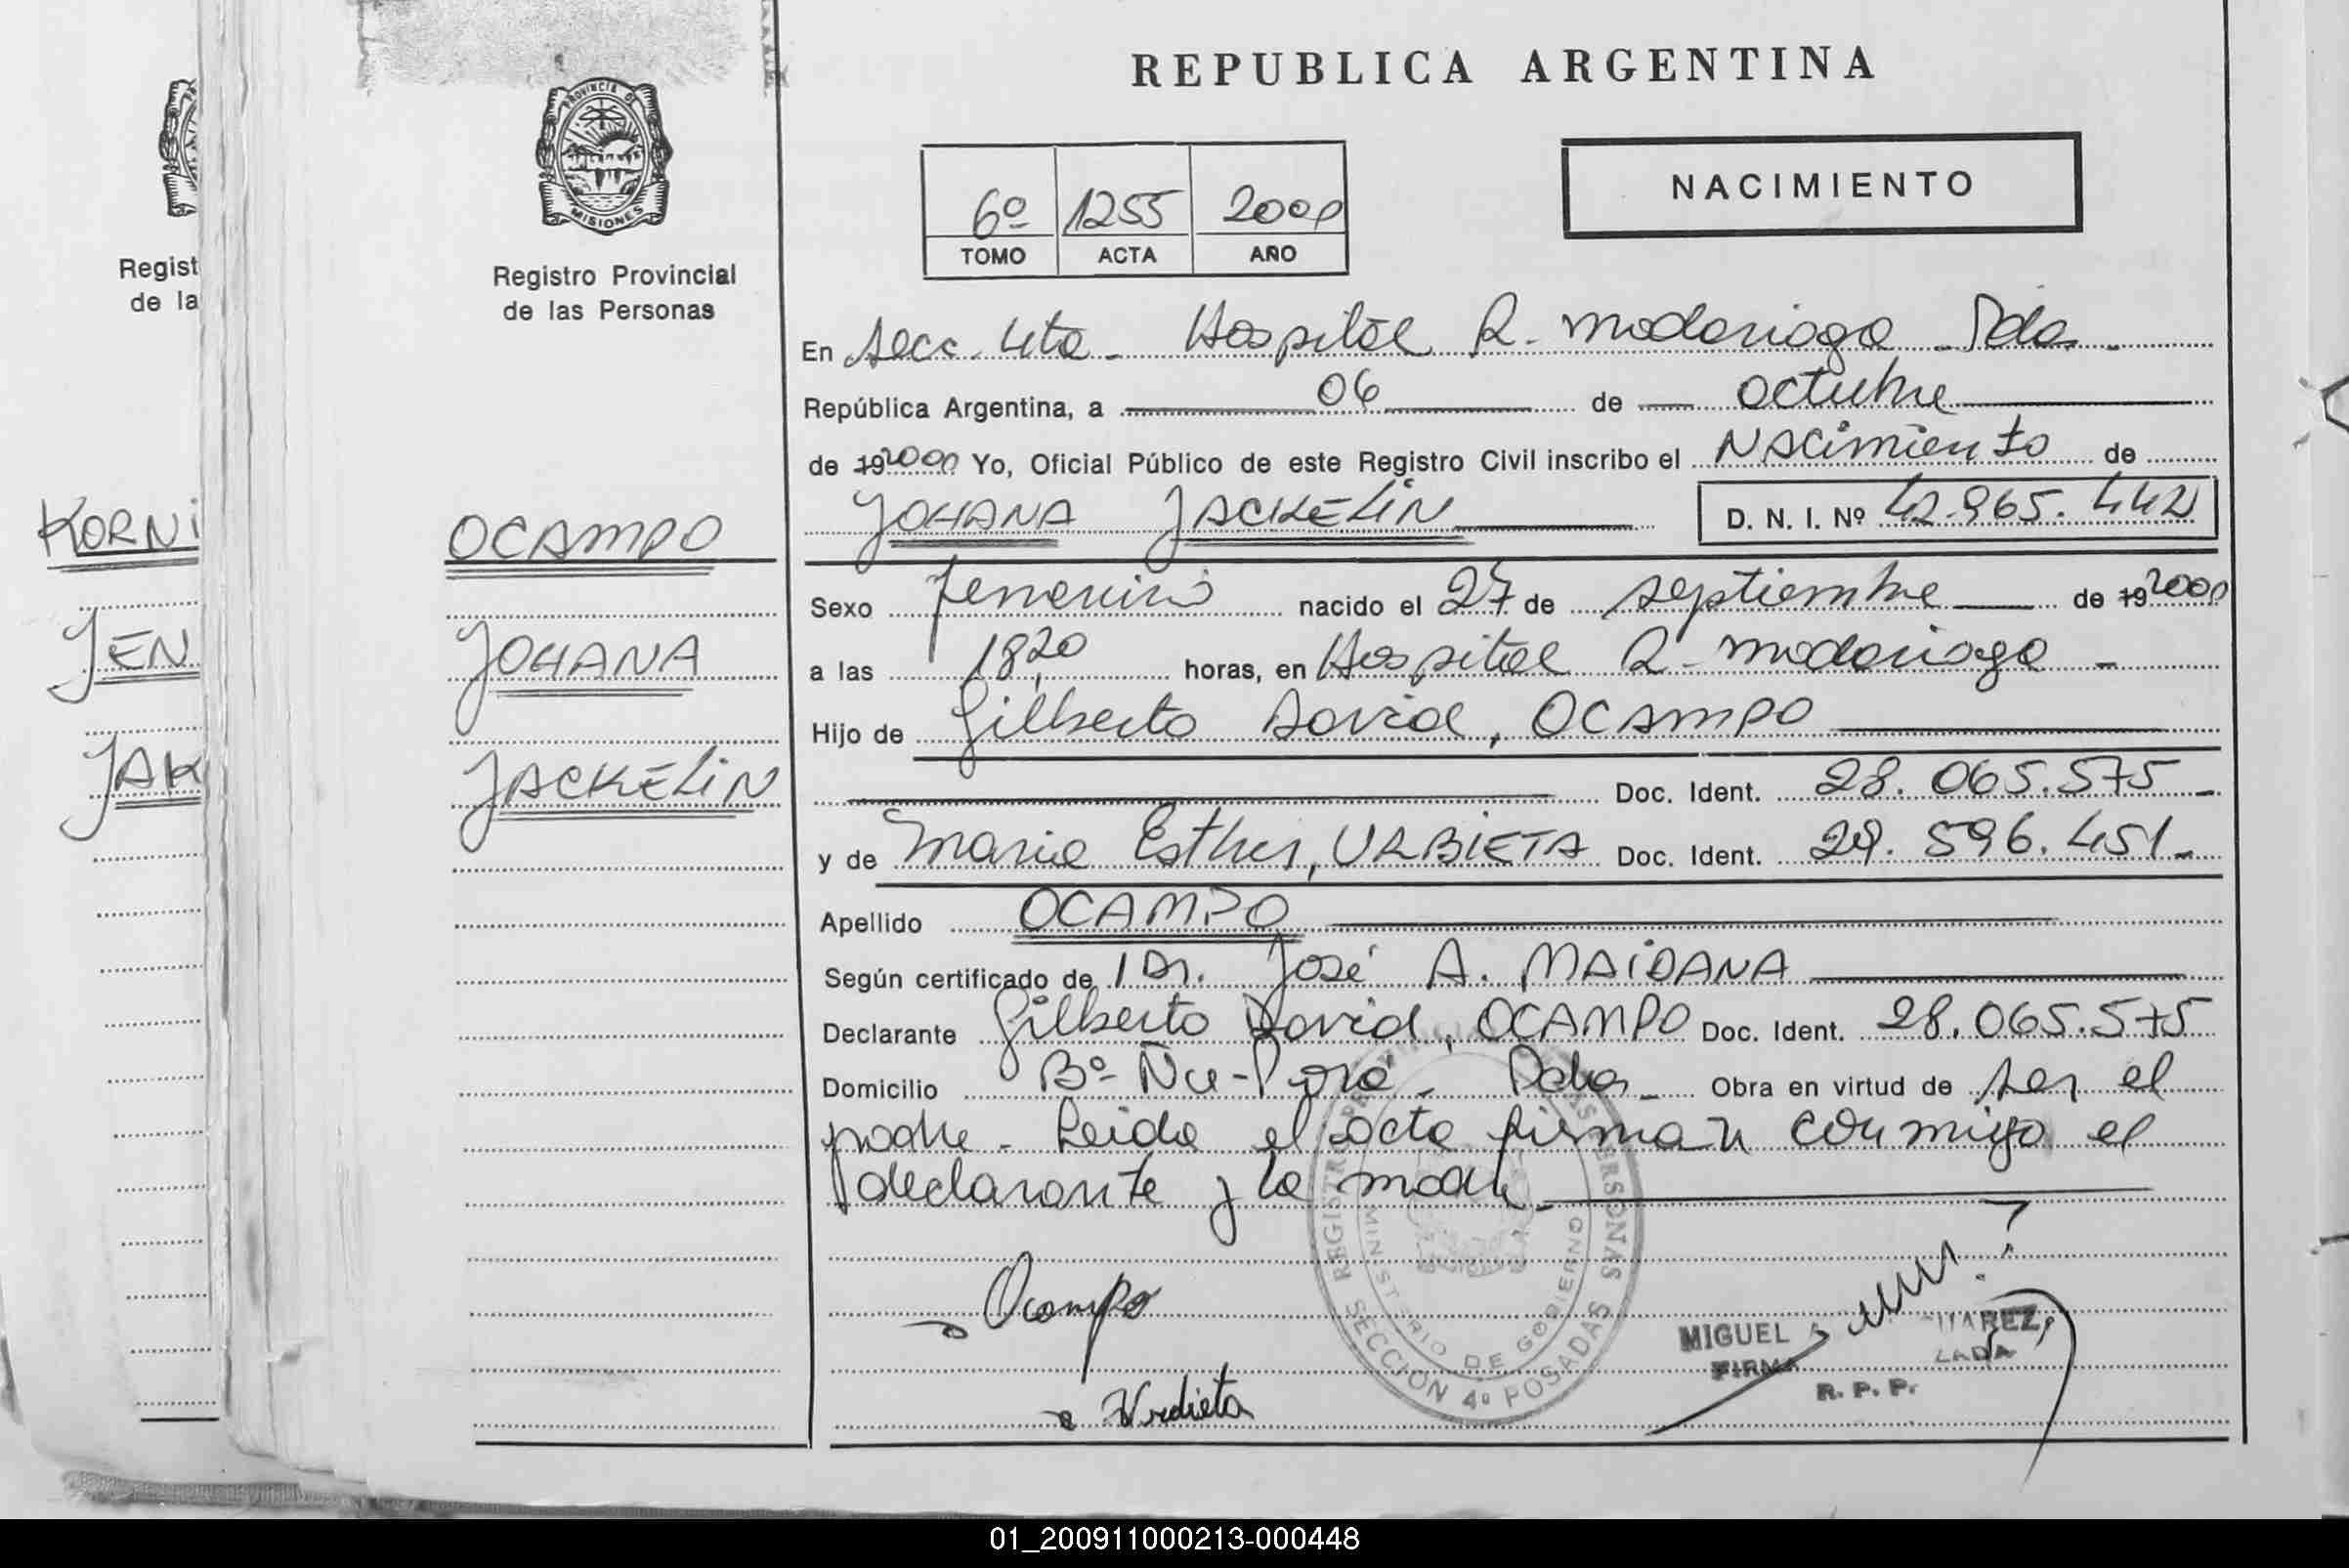 REPUBLICA ARGENTINA
PROVINCIA DE
MISIONES
Registro Provincial
de las Personas
Regist
de la
KORNi
JEN
JAK
OCAMPO
JOHANA
JACKELiN
6º 1255 2000
TOMO ACTA AÑO
NACIMIENTO
En Secc. 4ta - Hospital R. Madariaga - Pdas.-
República Argentina, a 06 de octubre
de 192000 Yo, Oficial Público de este Registro Civil inscribo el NACimiento de
JOHANA JACKELiN D. N. I. Nº 42.965.442
Sexo femenino nacido el 27 de septiembre de 192000
a las 18,20 horas, en Hospital R. Madariaga -
Hijo de Gilberto David, OCAMPO
Doc. Ident. 28.065.575 -
y de Maria Esther, URBIETA Doc. Ident. 29.596.451.-
Apellido OCAMPO
Según certificado de Dr. José A. MAiDANA
Declarante Gilberto David, OCAMPO Doc. Ident. 28.065.575
Domicilio Bº Ñu-Porá - Pdas - Obra en virtud de ser el
padre - Leida el acta firman conmigo el
declarante y la madre
Ocampo
Urbieta
REGISTRO PROVINCIAL DE LAS PERSONAS
MINISTERIO DE GOBIERNO
SECCION 4º POSADAS
MIGUEL
FIRMA
R. P. P.
01_200911000213-000448